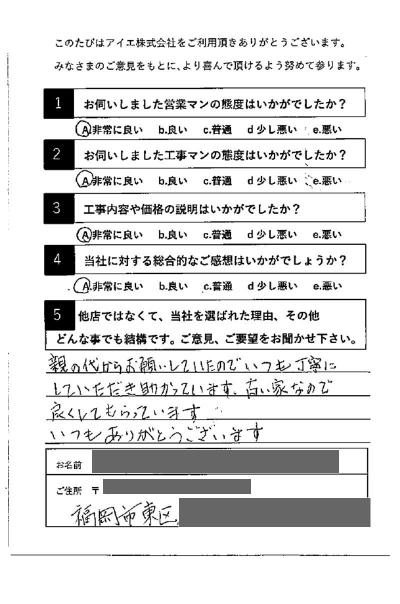 このたびはアイエ株式会社をご利用頂きありがとうございます。
みなさまのご意見をもとに、より喜んで頂けるよう努めて参ります。
1 お伺いしました営業マンの態度はいかがでしたか？
A非常に良い b.良い c.普通 d少し悪い e.悪い
2 お伺いしました工事マンの態度はいかがでしたか？
A非常に良い b.良い c.普通 d少し悪い e.悪い
3 工事内容や価格の説明はいかがでしたか？
A非常に良い b.良い c.普通 d少し悪い e.悪い
4 当社に対する総合的なご感想はいかがでしょうか？
A非常に良い b.良い c.普通 d少し悪い e.悪い
5 他店ではなくて、当社を選ばれた理由、その他
どんな事でも結構です。ご意見、ご要望をお聞かせ下さい。
親の代からお願いしていたのでいつも丁寧に
していただき助かっています、古い家なので
良くしてもらっています
いつもありがとうございます
お名前
ご住所 〒
福岡市東区